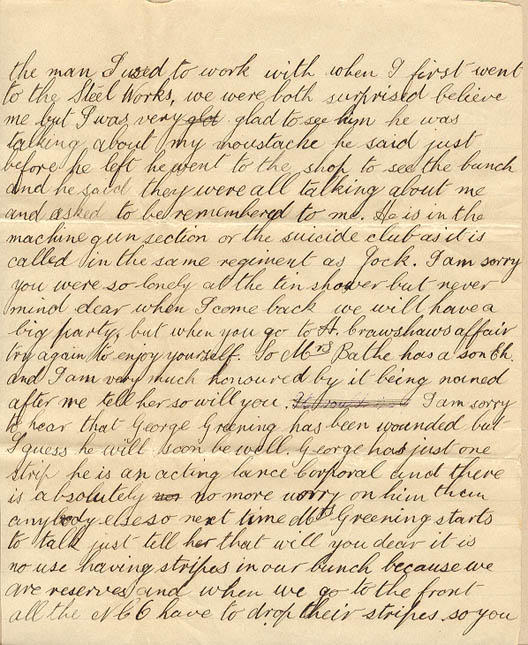 the man I used to work with when I first went
to the Steel Works, we were both surprised believe
me but I was very glat glad to see him he was
talking about my moustache he said just
before he left he went to the shop to see the bunch
and he said they were all talking about me
and asked to be remembered to me. He is in the
machine gun section or the suicide club as it is
called in the same regiment as Jock. I am sorry
you were so lonely at the tin shower but never
mind dear when I come back we will have a
big party, but when you go to H. Crawshaws affair
try again to enjoy yourself. So Mrs Bathe has a son Eh.
and I am very much honoured by it being named
after me tell her so will you. I am sorry
to hear that George Greening has been wounded but
I guess he will soon be well. George has just one
strip he is an acting lance Corporal and there
is absolutely nor no more worry on him then
anybody else so next time Mrs Greening starts
to talk just tell her that will you dear it is
no use having stripes in our bunch because we
are reserves and when we go to the front
all the NCO have to drop their stripes so you